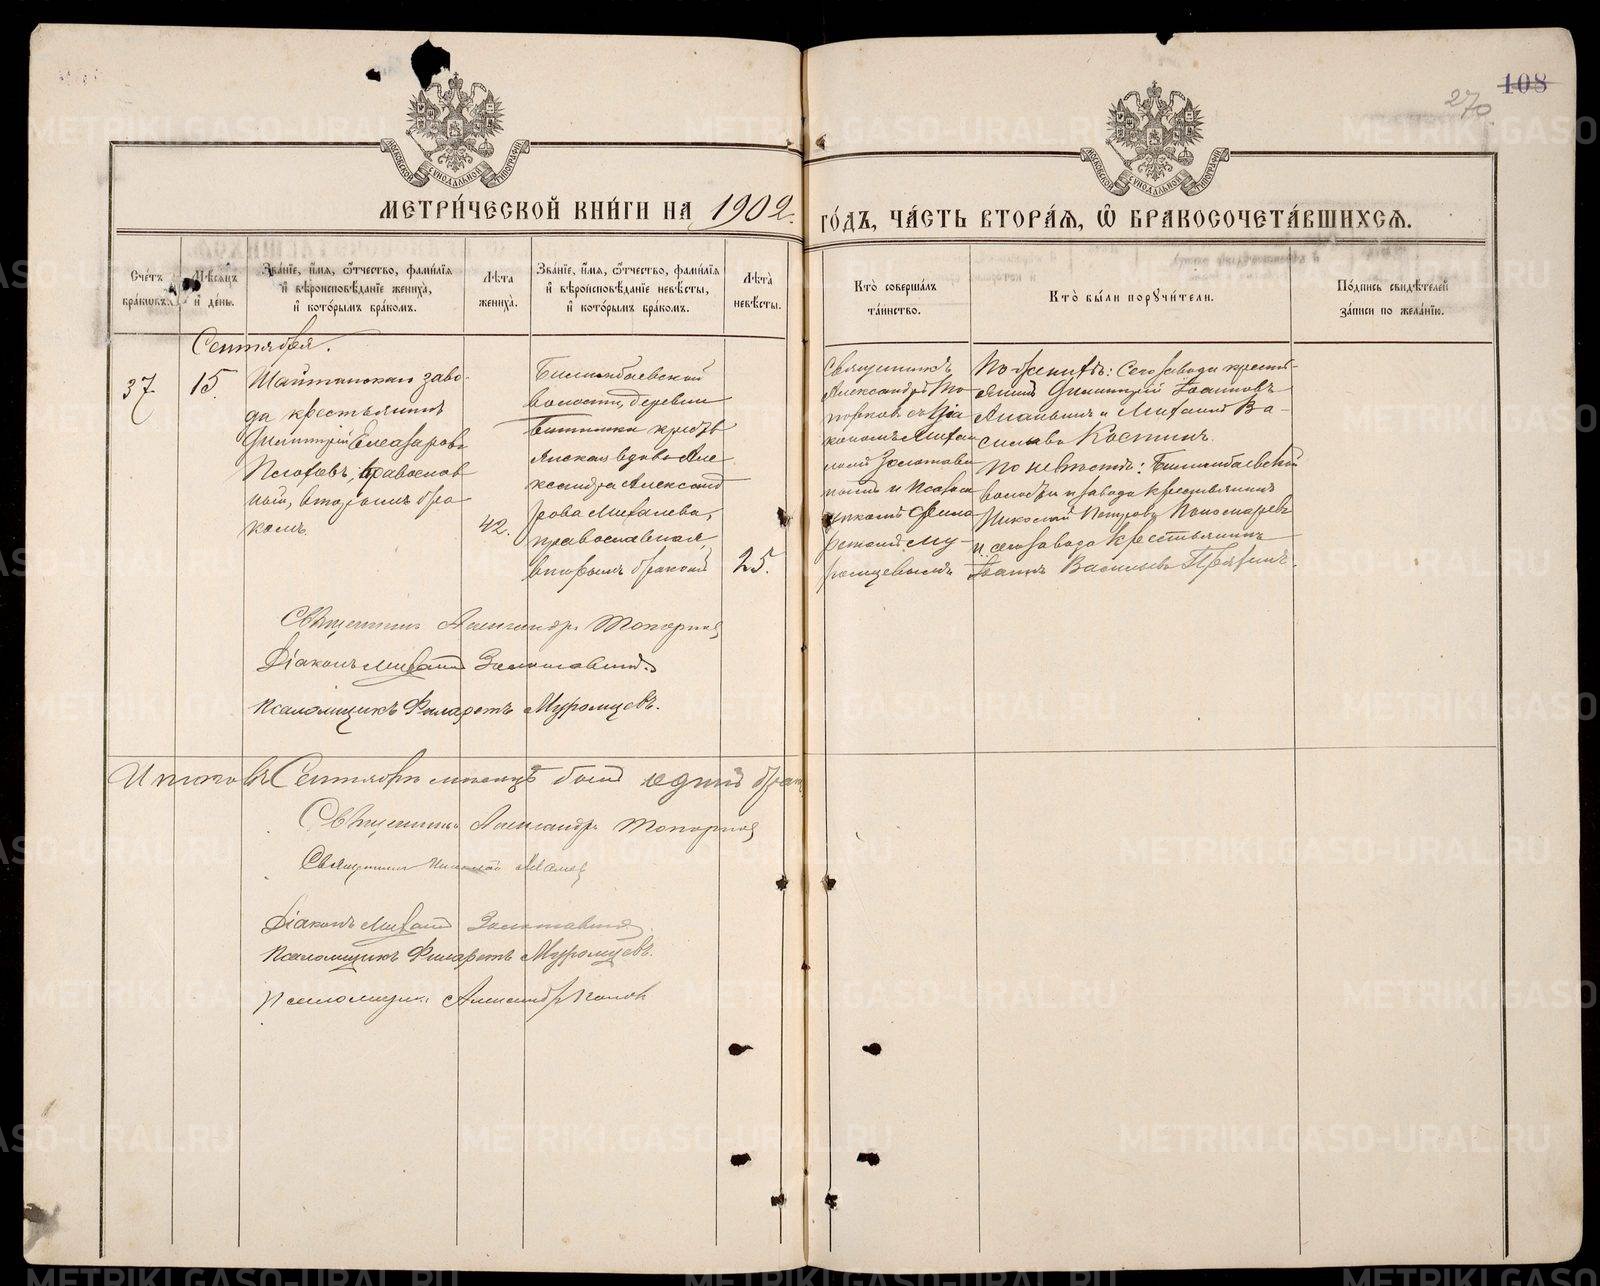 108
270
МОСКОВСКОЙ СѴНОДАЛЬНОЙ ТИПОГРАФІИ
МОСКОВСКОЙ СѴНОДАЛЬНОЙ ТИПОГРАФІИ
МЕТРИ́ЧЕСКОЙ КНИ́ГИ НА 1902 ГО́ДЪ, ЧА́СТЬ ВТОРА́Я, Ѡ҆ БРАКОСОЧЕТА́ВШИХСЯ.
Сче́тъ бра́ковъ.
Мѣ́сяцъ и҆ де́нь.
Зва́нїе, и҆́мя, ѻ҆́тчество, фамилїя и҆ вѣроисповѣ́данїе жениха̀, и҆ кото́рымъ бра́комъ.
Лѣ́та жениха̀.
Зва́нїе, и҆́мя, ѻ҆́тчество, фамилїя и҆ вѣроисповѣ́данїе невѣ́сты, и҆ кото́рымъ бра́комъ.
Лѣ́та невѣ́сты.
Кто̀ соверша́лъ та́инство.
Кто̀ бы́ли поручи́тели.
По́дпись свидѣ́телей за́писи по жела́нїю.
Сентября.
37
15.
Шайтанскаго заво-
да крестьянинъ
Димитрій Елеазаровъ
православ
ный, вторымъ бра
комъ.
42.
Билимбаевской
волости, деревни
крестьянская вдова Але
ксандра Александ
рова Михалева,
православная,
вторымъ бракомъ
25.
Священникъ
Александръ То
порковъ съ діа
кономъ Михаи
ломъ Золотави
нымъ и Псалом
щикомъ Фила
ретомъ Му-
ромцевымъ
По женихѣ: сего завода кресть-
янинъ Димитрій Іоанновъ
Ананьинъ и Михаилъ Ва-
сильевъ Костинъ.
По невѣстѣ: Билимбаевской
волости и завода крестьянинъ
Николай Петровъ Пономаревъ
и сего завода крестьянинъ
Іоаннъ Васильевъ
Священникъ Александръ Топорковъ
Діаконъ Михаилъ Золотавинъ.
Псаломщикъ Филаретъ Муромцевъ.
Итого въ Сентябрѣ мѣсяцѣ былъ одинъ бракъ
Священникъ Александръ Топорковъ
Священникъ Николай
Діаконъ Михаилъ Золотавинъ
Псаломщикъ Филаретъ Муромцевъ.
Псаломщикъ Александръ Поповъ
METRIKI.GASO-URAL.RU